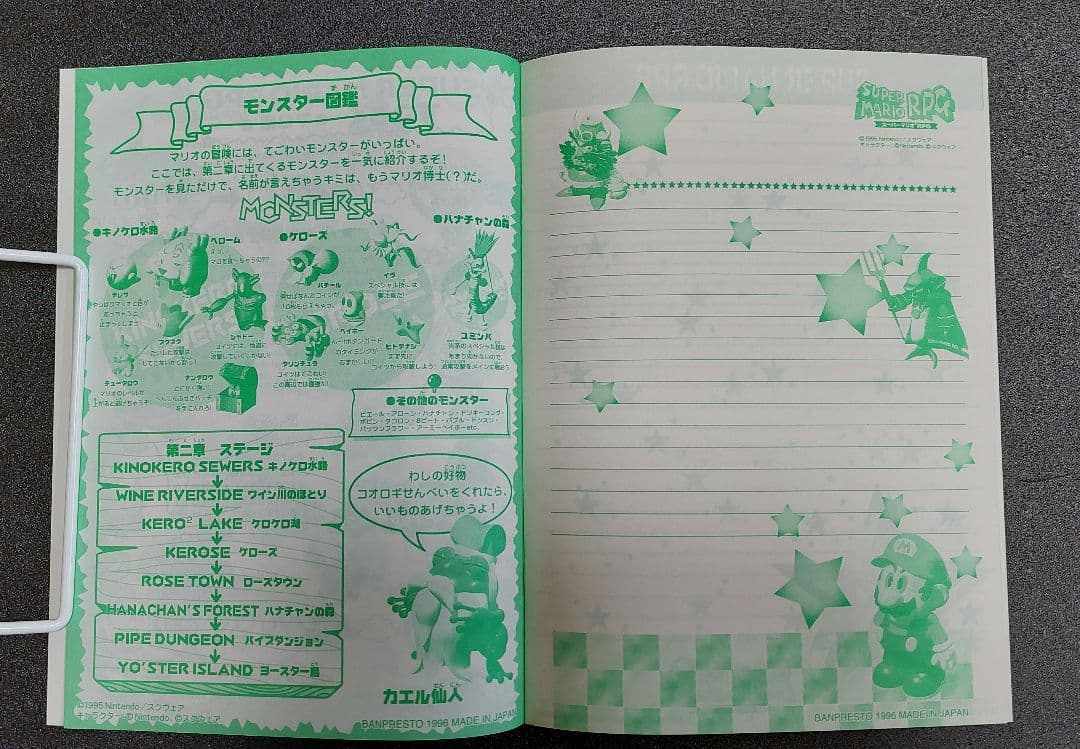 モンスター図鑑
ず かん
マリオの冒険には、てごわいモンスターがいっぱい。
ここでは、第二章に出てくるモンスターを一気に紹介するぞ!
モンスターを見ただけで、名前が言えちゃうキミは、もうマリオ博士(?)だ。
MONSTERS!
●キノケロ水路
ベローム
マリオを食べちゃうの??
テレサ
シャドー
アクコウ
チュータロウ
マリオのレベルが
上がると逃げちゃうぞ!
ナンダロウ
とにかく強い!
●ケローズ
パチール
イヴ
スペシャル技には
ヘイホー
タリンチュラ
コイツはてごわい!
この周辺では最強だ!
ヒトデナシ
コイツから攻撃しよう!
●ハナチャンの森
ユミンパ
あまり効かないので、
通常攻撃をメインに戦おう
●その他のモンスター
ピエール・アローン・ハナチャン・ドンキーコング・
ボビン・タコロン・8ビート・バブル・ドッスン・
パックンフラワー・アーミーヘイホーetc.
第二章 ステージ
KINOKERO SEWERS キノケロ水路
WINE RIVERSIDE ワイン川のほとり
KERO² LAKE ケロケロ湖
KEROSE ケローズ
ROSE TOWN ローズタウン
HANACHAN'S FOREST ハナチャンの森
PIPE DUNGEON パイプダンジョン
YO'STER ISLAND ヨースター島
わしの好物
コオロギせんべいをくれたら、
いいものあげちゃうよ!
カエル仙人
©1995 Nintendo/スクウェア
キャラクター:©Nintendo、©スクウェア
BANPRESTO 1996 MADE IN JAPAN
SUPER
MARIO RPG
スーパーマリオRPG
©1995 Nintendo/スクウェア
キャラクター:©Nintendo、©スクウェア
BANPRESTO 1996 MADE IN JAPAN